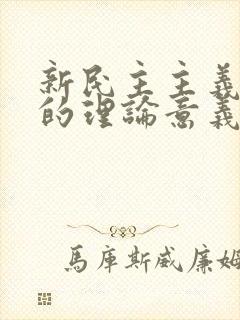 新民主主義
的理論意義
馬庫斯威廉姆